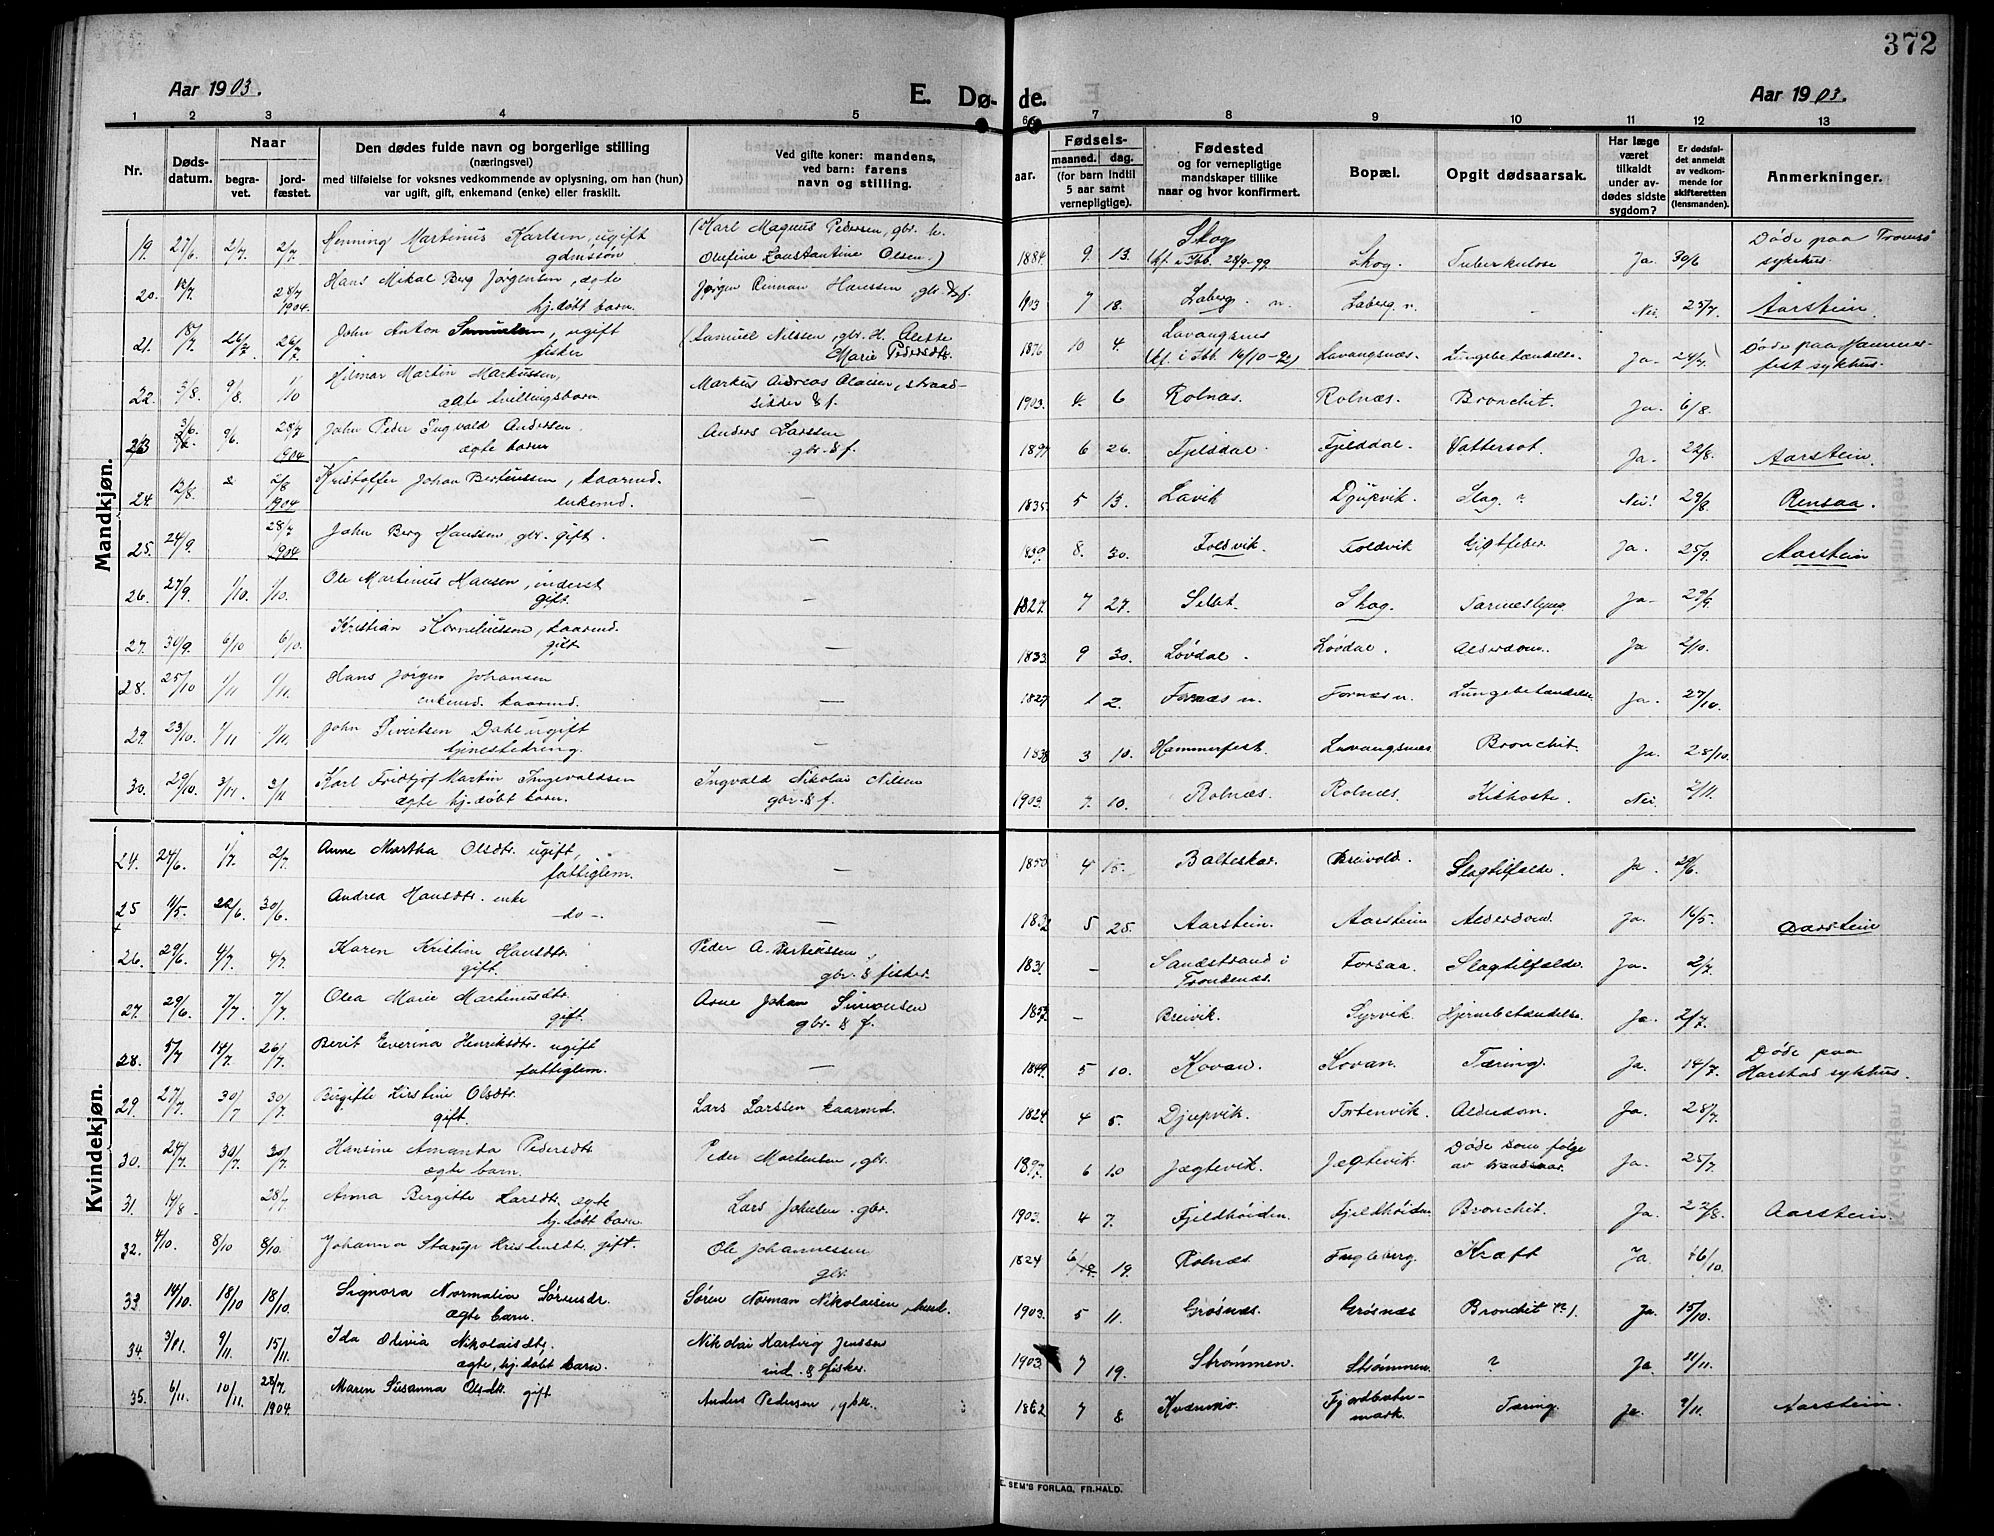 372
Aar 1903.
E. Dø- de.
Aar 1903.
1 2 3 4 5 6 7 8 9 10 11 12 13
Nr.
Døds-
datum.
Naar
begra-
vet.
jord-
fæstet.
Den dødes fulde navn og borgerlige stilling
(næringsvei)
med tilføielse for voksnes vedkommende av oplysning, om han (hun)
var ugift, gift, enkemand (enke) eller fraskilt.
Ved gifte koner: mandens,
ved barn: farens
navn og stilling.
Fødsels-
aar.
maaned.
dag.
(for barn indtil
5 aar samt
vernepligtige).
Fødested
og for vernepligtige
mandskaper tillike
naar og hvor konfirmert.
Bopæl.
Opgit dødsaarsak.
Har læge
været
tilkaldt
under av-
dødes sidste
sygdom?
Er dødsfal-
det anmeldt
av vedkom-
mende for
skifteretten
(lensmanden).
Anmerkninger.
Mandkjøn.
19. 27/6 2/7 2/7 Henning Martinus Karlsen, ugift
gdmssøn
(Karl Magnus Pedersen, gbr. h.
Olufine Konstantine Olsen.)
1884. 9. 13. Skog
(kf. i Ibb. 24/9-99 Skog. Tuberkulose Ja. 30/6 Døde paa Tromsø
sykehus.
20. 28/7 1904. Hans Mikal Berg Jørgensen, ægte
hj.døbt barn.
Jørgen Penman Hanssen, gbr. & f.
1903 7 18. Laberg. n. Laberg n. - Nei. 25/7 Aarstein.
21. 18/7 26/7 26/7 John Anton Samuelsen, ugift
fisker
(Samuel Nilssen, gbr. H. Alette
Marie Pedersdtr.
1876 10 4. Lavangsnes
(kf. i Ibb. 16/10-92) Lavangsnæs. Lungebetændelse. Ja. 24/7 Døde paa Hammer-
fest sykhus.
22. 3/8. 9/8. 1/10 Hilmar Martin Markussen,
ægte tvillingsbarn.
Markus Andreas Olaisen, strand-
sidder & f.
1903. 4. 6 Rolnæs. Rolnæs. Bronchit. Ja. 6/8.
23 3/6. 9/6. 28/7 1904 John Peder Ingvald Andersen.
ægte barn
Anders Larssen
gbr. & f.
1897 6 26. Fjelddal. Fjelddal. Vattersot. Ja. 22/8. Aarstein.
24. 12/8. 2/8 1904 Kristoffer Johan Berteussen, kaarmd.
enkemd.
-
1835. 5 13. Lavik Djupvik. Slag. ? Nei! 29/8. Rensaa.
25. 24/9. 28/7 1904 John Berg Hanssen, gbr. gift.
-
1839. 8. 30. Foldvik. Foldvik Gigtfeber. Ja. 25/9. Aarstein
26. 27/9. 1/10. 1/10. Ole Martinus Hansen, inderst
gift.
-
1827. 7 27. Selset. Skog. Tarmeslyng. Ja - 29/9.
27. 30/9. 6/10 6/10. Kristian Korneliussen, kaarmd.
gift
-
1833. 9 30. Løvdal. Løvdal. Alderdom. Ja 2/10.
28. 25/10 1/11 1/11. Hans Jørgen Johansen
enkemd. kaarmd.
-
1827 1 2. Fornæs n. Fornæs n. Lungebetændelse Ja. 27/10.
29. 23/10. 1/11 1/11. John Sivertsen Dahl ugift
tjenestedreng.
-
1838 3 10. Hammerfest. Lavangsnæs Bronchit. Ja. 28/10.
30. 29/10. 3/11. 3/11 Karl Fridtjof Martin Ingevaldsen
ægte hj.døbt barn.
Ingvald Nikolai Nilsen
gbr. & f.
1903. 7. 10. Rolnæs. Rolnæs. Kikhoste. Nei. 2/11.
Kvindekjøn.
24. 24/6. 1/7. 2/7. Anne Martha Olsdtr. ugift,
fattiglem.
-
1850 4 15. Balteskar. Breivold. Slagtilfælde. Ja. 29/6.
25 11/5. 22/6. 30/6. Andrea Hansdtr. enke
-do-.
-
1832 5 25. Aarstein. Aarstein Alderdom. Ja. 16/5. Aarstein
26. 29/6. 4/7. 4/7. Karen Kristine Hansdtr.
gift.
Peder A. Berteussen,
gbr. & fisker.
1831. - Sandstrand i
Trondenes. Forsaa. Slagtilfælde. Ja. 2/7.
27. 29/6. 7/7. 7/7. Olea Marie Martinusdtr.
gift.
Arne Johan Simonsen
gbr. & f.
1857. - Breivik. Hjernebetændelse. Ja. 2/7.
28. 5/7 14/7. 26/7. Berit Everina Henriksdtr. ugift
fattiglem.
-
1849. 5 10. Kovan. Kovan. Tæring. Ja. 14/7. Døde paa
Harstad sykhus.
29. 27/7. 30/7 30/7. Birgitte Kirstine Olsdtr.
gift.
Lars Larssen kaarmd.
1824 4 5. Djupvik. Tortenvik. Alderdom. Ja. 28/7.
30. 24/7. 30/7. 30/7. Hansine Amanda Pedersdtr.
ægte barn.
Peder Mortensen, gbr.
1897. 6 10 Jægtevik. Jægtevik. Døde som følge
av brandsaar. Ja. 25/7.
31. 17/8 28/7. Anna Bergitte Larsdtr. ægte
hj.døbt barn.
Lars Johnsen. gbr.
1903. 4 7. Fjeldhøiden. Fjeldhøiden Bronchit. Ja. 22/8. Aarstein.
32. 4/10. 8/10 8/10. Johanna Starup Kristensdtr. gift.
Ole Johannessen
gbr.
1824 6 19. Rolnæs. Fugleberg. Kræft Ja 6/10.
33 14/10. 18/10 18/10. Signora Normalia Sørensdr.
ægte barn.
Søren Norman Nikolaisen,
1903. 5 11. Grøsnæs. Grøsnæs Bronchit (?). Ja. 15/10.
34 3/11. 9/11. 15/11. Ida Olivia Nikolaisdtr.
ægte, hj.døbt barn.
Nikolai Hartvig Jenssen
ind. & fisker.
1903. 7 19. Strømmen. Strømmen. ? Ja 11/11.
35. 6/11. 10/11. 28/7 1904. Maren Susanna Olsdtr. gift
Anders Pedersen, gbr.
1862 7 8. Kværnmo. Fjordbotn-
mark. Tæring. Ja. 9/11. Aarstein.
E. SEM'S FORLAG, FR.HALD.